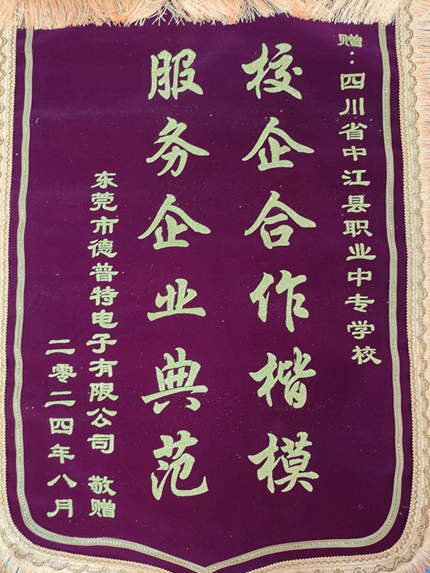 赠：四川省中江县职业中专学校
校企合作楷模
服务企业典范
东莞市德普特电子有限公司 敬赠
二零二四年八月